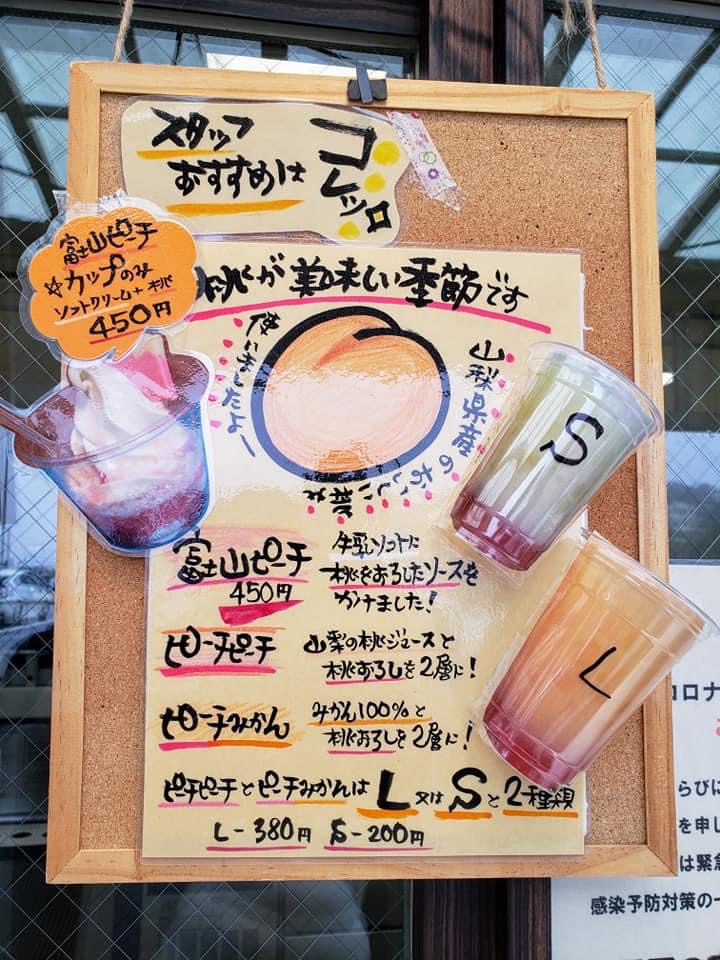 スタッフ
おすすめは
コレッ!
富士山ピーチ
☆カップのみ
ソフトクリーム+桃
450円
桃が美味しい季節です
山梨県産の
使いましたよー
S
L
富士山ピーチ
450円
牛乳ソフトに
桃をおろしたソースを
かけました!
ピーチピーチ
山梨の桃ジュースと
桃おろしを2層に!
ピーチみかん
みかん100%と
桃おろしを2層に!
ピーチピーチとピーチみかんは L 又は S と2種類
L-380円 S-200円
コロナ
らびに
を申し
は緊急
感染予防対策の一